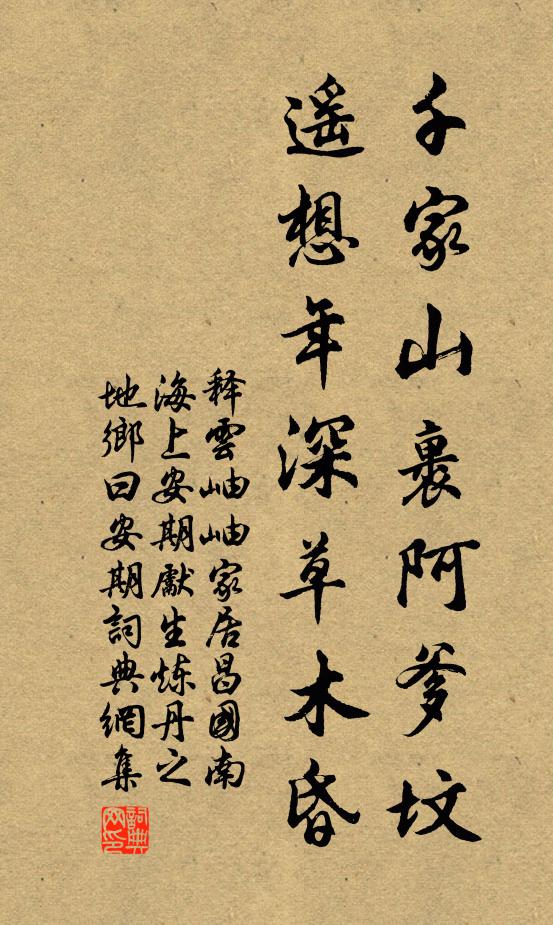 千家山裏阿爹坟
遥想年深草木昏
释雲岫岫家居昌國南
海上安期獻生炼丹之
地鄉曰安期詞典網集
詞典网印